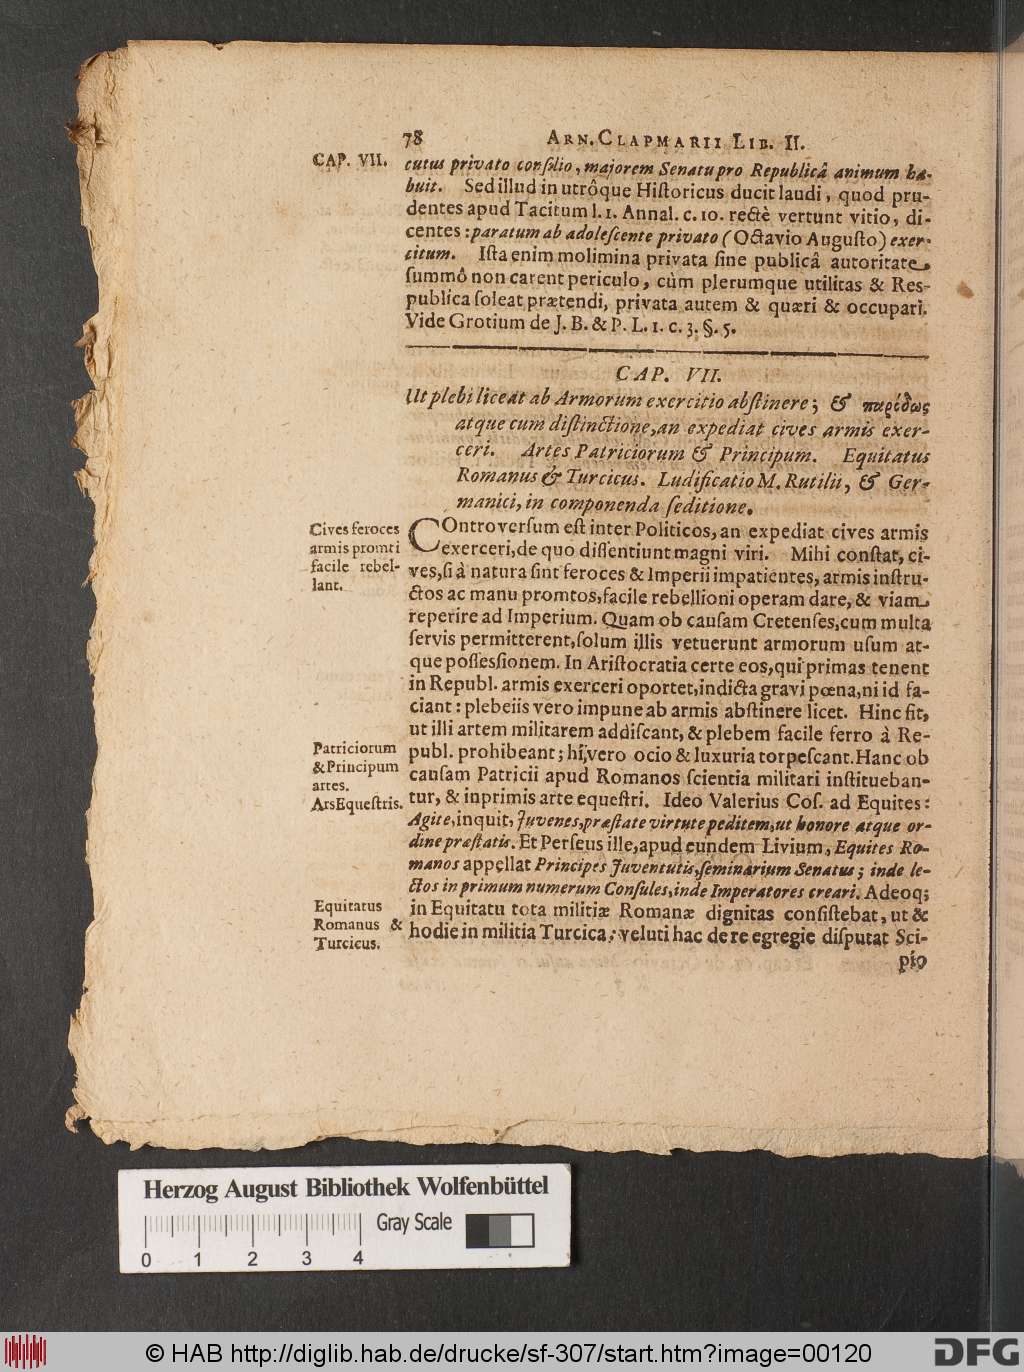 78 ARN. CLAPMARII LIB. II.
CAP. VII.
cutus privato consilio, majorem Senatu pro Republicâ animum ha-
buit. Sed illud in utrôque Historicus ducit laudi, quod pru-
dentes apud Tacitum l. 1. Annal. c. 10. rectè vertunt vitio, di-
centes: paratum ab adolescente privato (Octavio Augusto) exer-
citum. Ista enim molimina privata sine publicâ autoritate
summô non carent periculo, cùm plerumque utilitas & Res-
publica soleat prætendi, privata autem & quæri & occupari.
Vide Grotium de J. B. & P. L. 1. c. 3. §. 5.
CAP. VII.
Ut plebi liceat ab Armorum exercitio abstinere; &
atque cum distinctione, an expediat cives armis exer-
ceri. Artes Patriciorum & Principum. Equitatus
Romanus & Turcicus. Ludificatio M. Rutilii, & Ger-
manici, in componenda seditione.
Cives feroces
armis promti
facile rebel-
lant.
COntroversum est inter Politicos, an expediat cives armis
exerceri, de quo dissentiunt magni viri. Mihi constat, ci-
ves, si à natura sint feroces & Imperii impatientes, armis instru-
ctos ac manu promtos, facile rebellioni operam dare, & viam
reperire ad Imperium. Quam ob causam Cretenses, cum multa
servis permitterent, solum illis vetuerunt armorum usum at-
que possessionem. In Aristocratia certe eos, qui primas tenent
in Republ. armis exerceri oportet, indicta gravi pœna, ni id fa-
ciant: plebeiis vero impune ab armis abstinere licet. Hinc fit,
ut illi artem militarem addiscant, & plebem facile ferro à Re-
publ. prohibeant; hi, vero ocio & luxuria torpescant. Hanc ob
causam Patricii apud Romanos scientia militari institueban-
tur, & inprimis arte equestri. Ideo Valerius Cos. ad Equites:
Agite, inquit, Juvenes, præstate virtute peditem, ut honore atque or-
dine præstatis. Et Perseus ille, apud eundem Livium, Equites Ro-
manos appellat Principes Juventutis, seminarium Senatus; inde le-
ctos in primum numerum Consules, inde Imperatores creari. Adeoq;
in Equitatu tota militiæ Romanæ dignitas consistebat, ut &
hodie in militia Turcica: veluti hac de re egregie disputat Sci-
pio
Patriciorum
& Principum
artes.
Ars Equestris.
Equitatus
Romanus &
Turcicus.
Herzog August Bibliothek Wolfenbüttel
Gray Scale
0 1 2 3 4
© HAB http://diglib.hab.de/drucke/sf-307/start.htm?image=00120
DFG